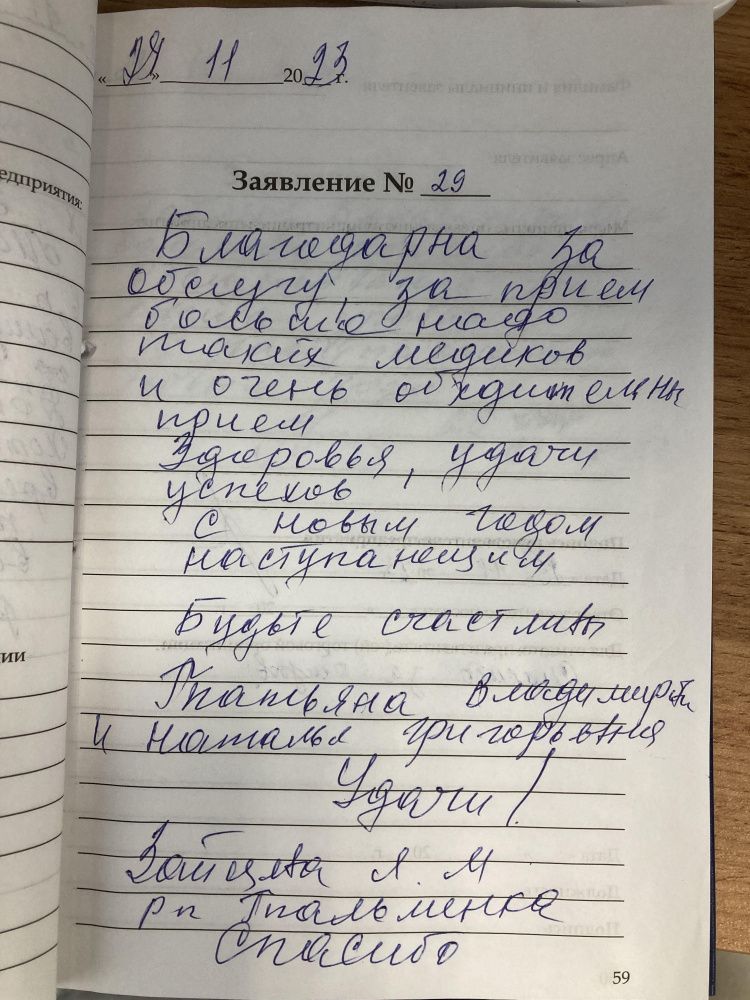 « » 11 2023 г.
Заявление № 29
Благодарна за
обслугу, за прием
больше надо
таких медиков
и очень
прием
Здоровья, удачи
успехов
С новым годом
наступающим
Будьте счастливы
Татьяна
и Наталья Григорьевна
Удачи!
Зайцева Л. М
рп Тальменка
Спасибо
59
едприятия:
ии